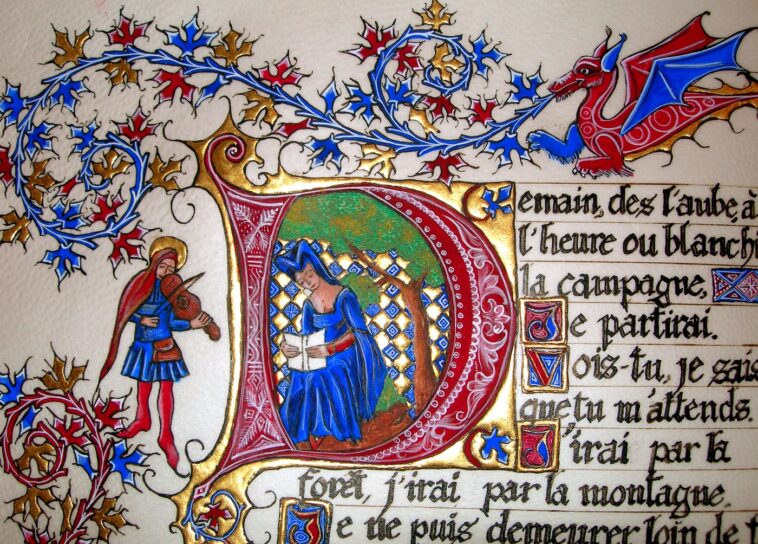 Demain, des l'aube, à
l'heure ou blanchi
la campagne,
Je partirai.
Vois-tu, je sais
que tu m'attends.
J'irai par la
forêt, j'irai par la montagne.
Je ne puis demeurer loin de t